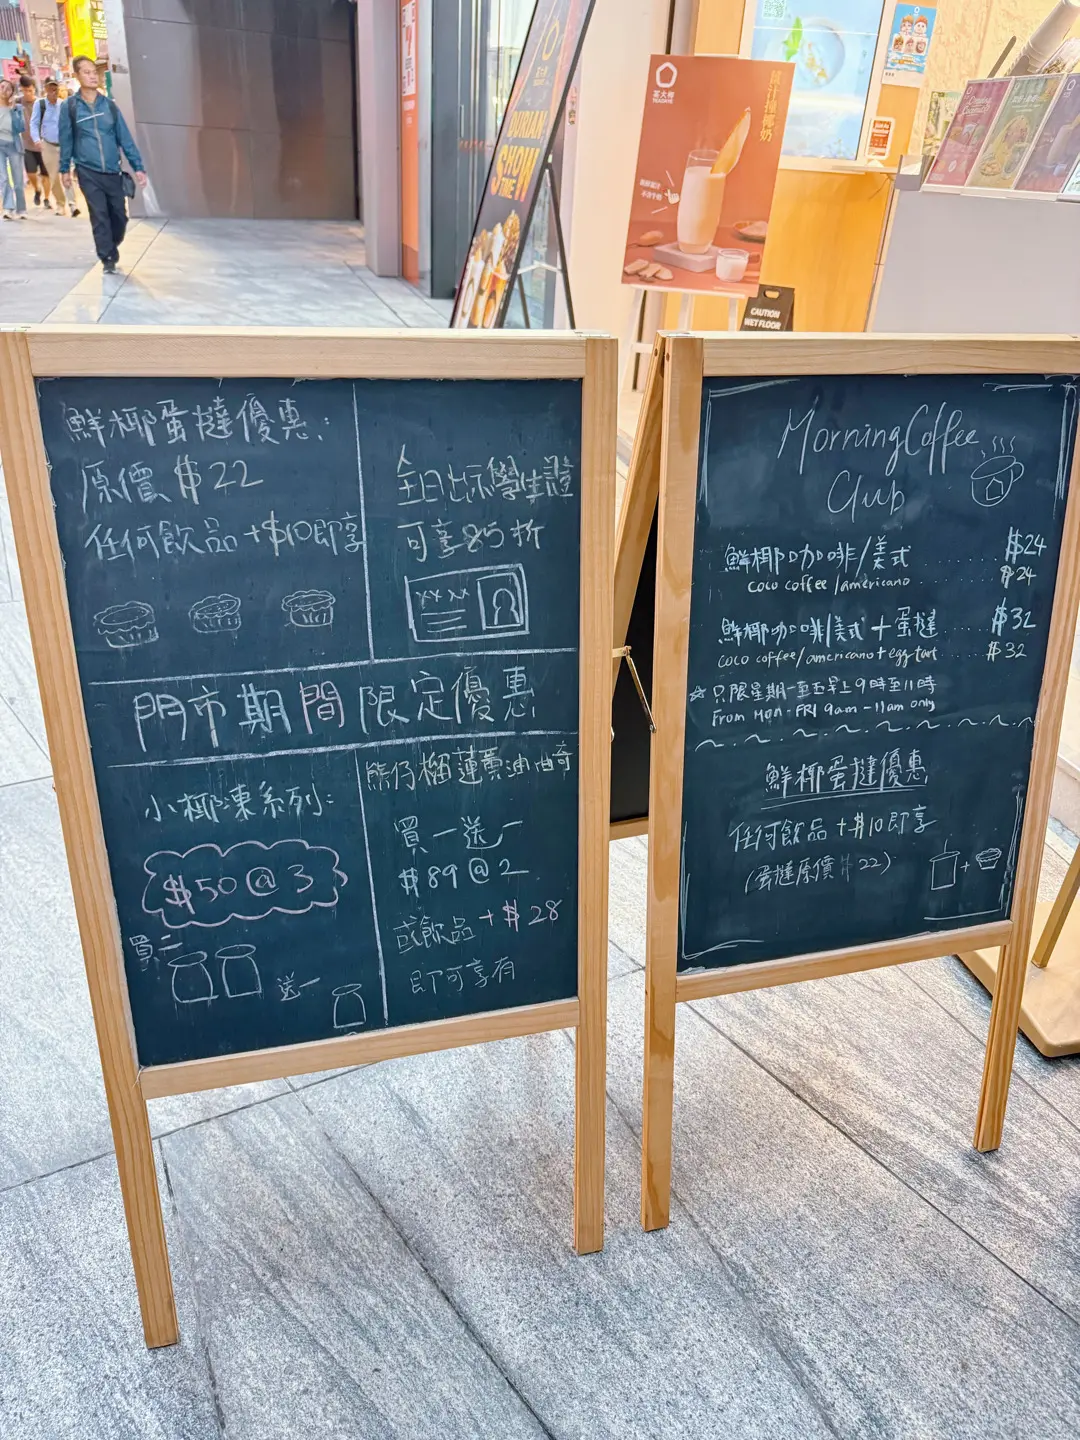 鮮椰蛋撻優惠:
原價 $22
任何飲品 +$10即享
全日出示學生證
可享85折
門市期間限定優惠
小椰凍系列:
$50@3
買二
送一
熊仔榴蓮賣油曲奇
買一送一
$89@2
或飲品 + $28
即可享有
Morning Coffee
Club
鮮椰咖啡/美式 $24
coco coffee /americano $24
鮮椰咖啡/美式 + 蛋撻 $32
coco coffee/americano + egg tart $32
☆ 只限星期一至五早上9時至11時
From Mon - FRI 9am - 11am only
鮮椰蛋撻優惠
任何飲品 +$10即享
(蛋撻原價$22)
DURIAN
SHOW
TIME
CAUTION
WET FLOOR